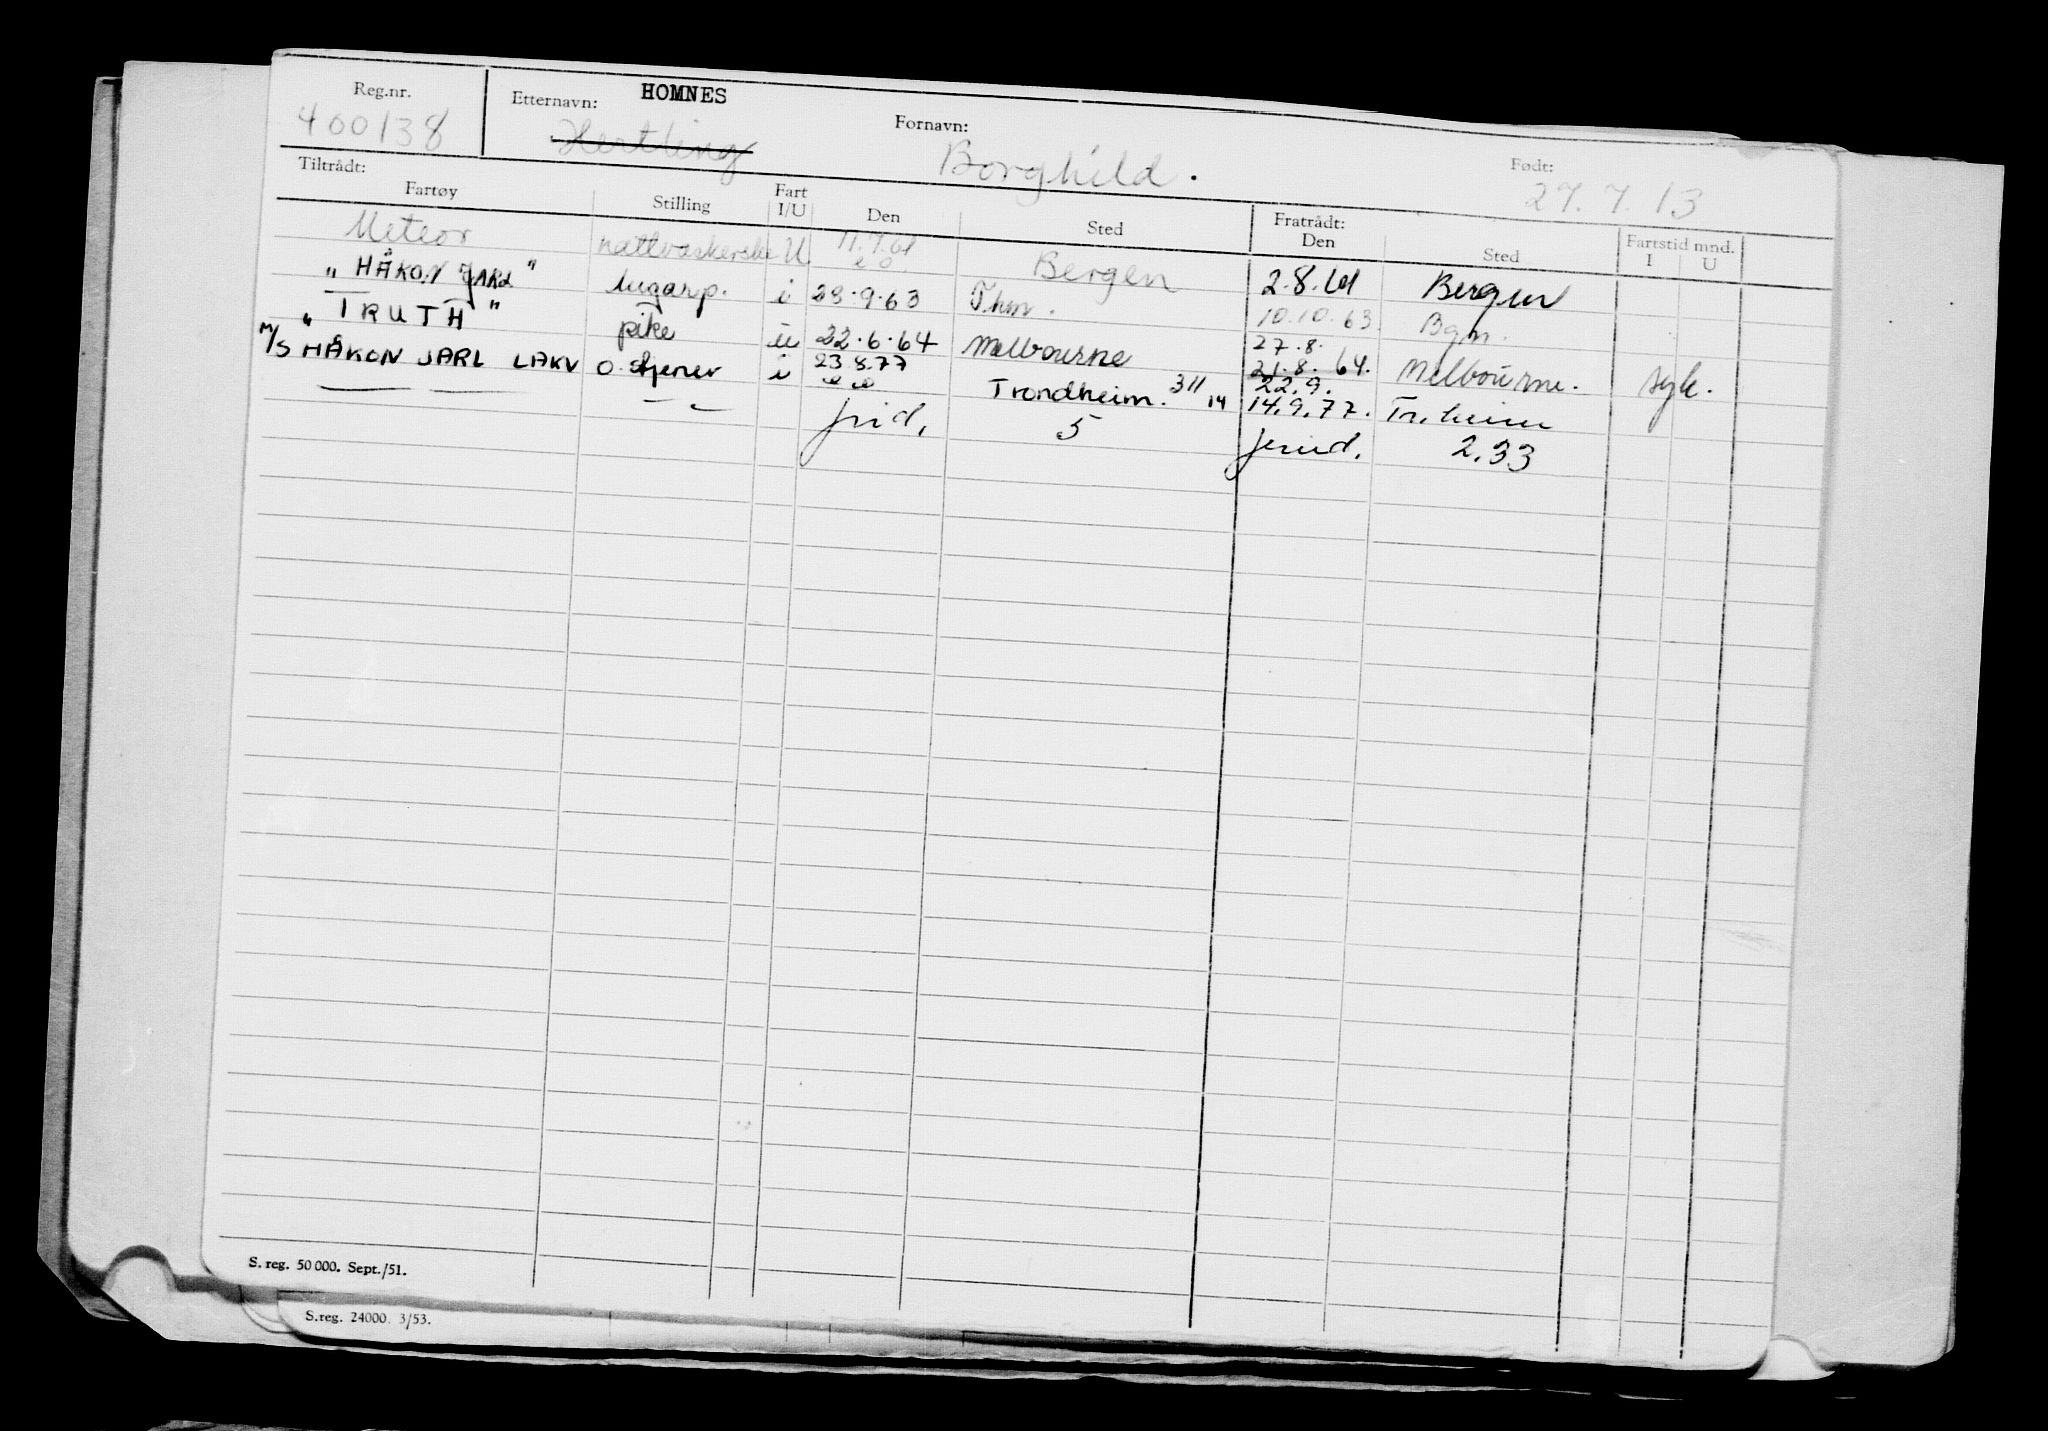 Reg.nr. Etternavn: HOMNES Fornavn: Født:
400138 Hertling Borghild. 27.7.13
Tiltrådt: Fratrådt:
Fartøy Stilling Fart I/U Den Sted Den Sted Fartstid mnd. I U
Meteor nattvaskerske U 11.7.61 Bergen 2.8.61 Bergen
"HÅKON JARL" lugarp. i 28.9.63 Thm. 10.10.63. Bgn.
"TRUTH" pike u 22.6.64 Melbourne 27.8. 21.8.64. Melbourne. syk.
M/S HÅKON JARL LAKV O.stjener i 23.8.77 Trondheim. 311 14 22.9. 14.9.77. Tr.heim
5 2.33
S. reg. 50 000. Sept./51.
S.reg. 24000. 3/53.